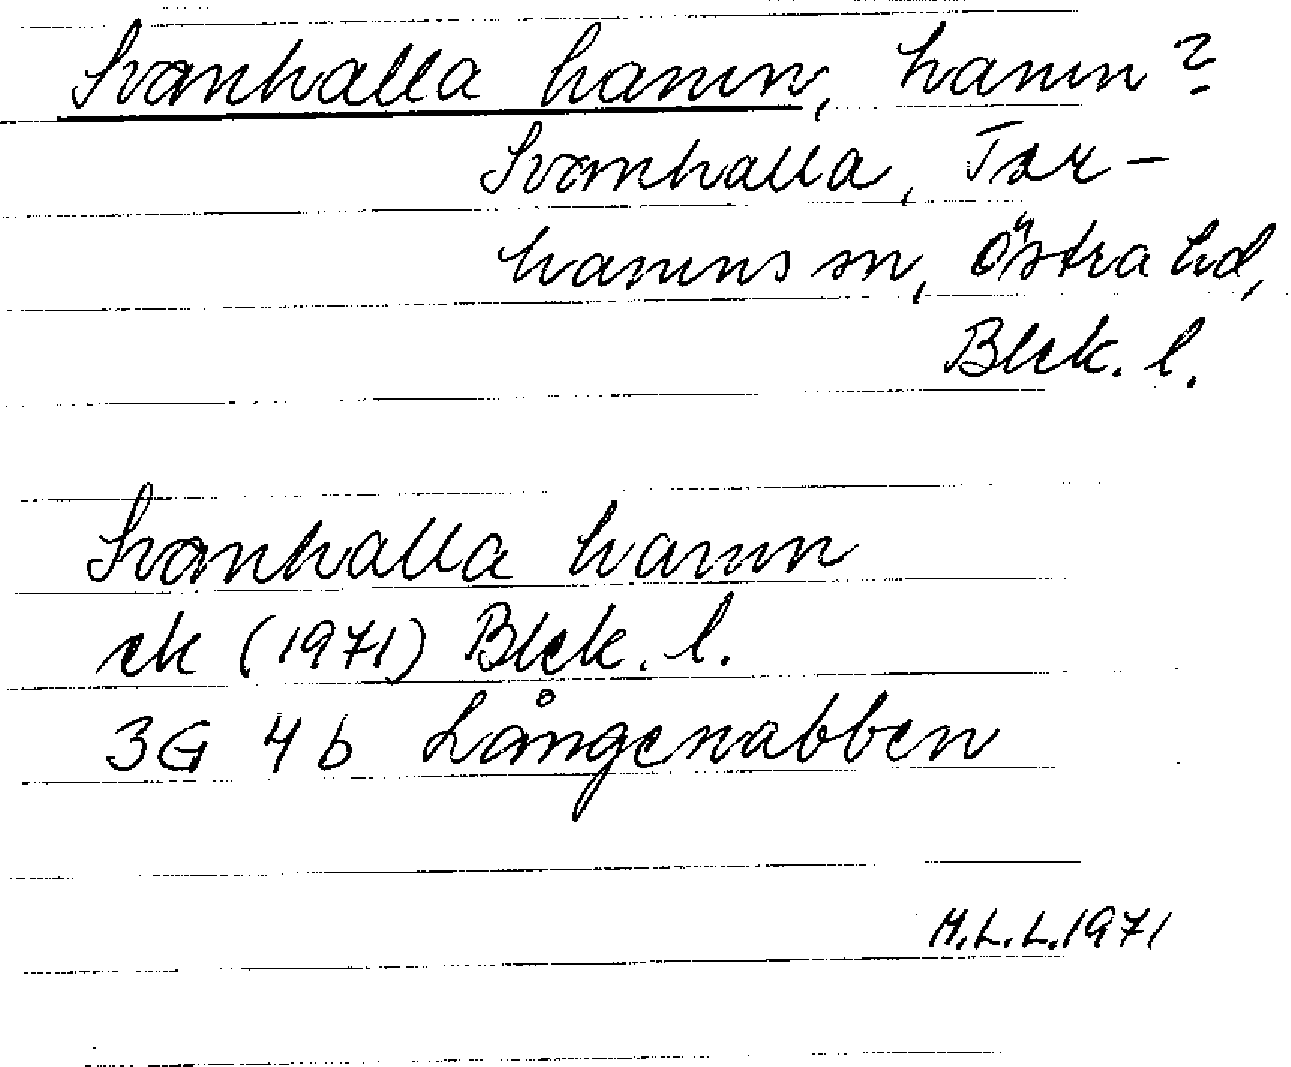 Svanhalla hamn, hamn?
Svanhalla, Tor-
hamns sn, östra hd,
Blek. l.
Svanhalla hamn
ek (1971) Blek. l.
3G 4b Långenabben
M.L.L.1971